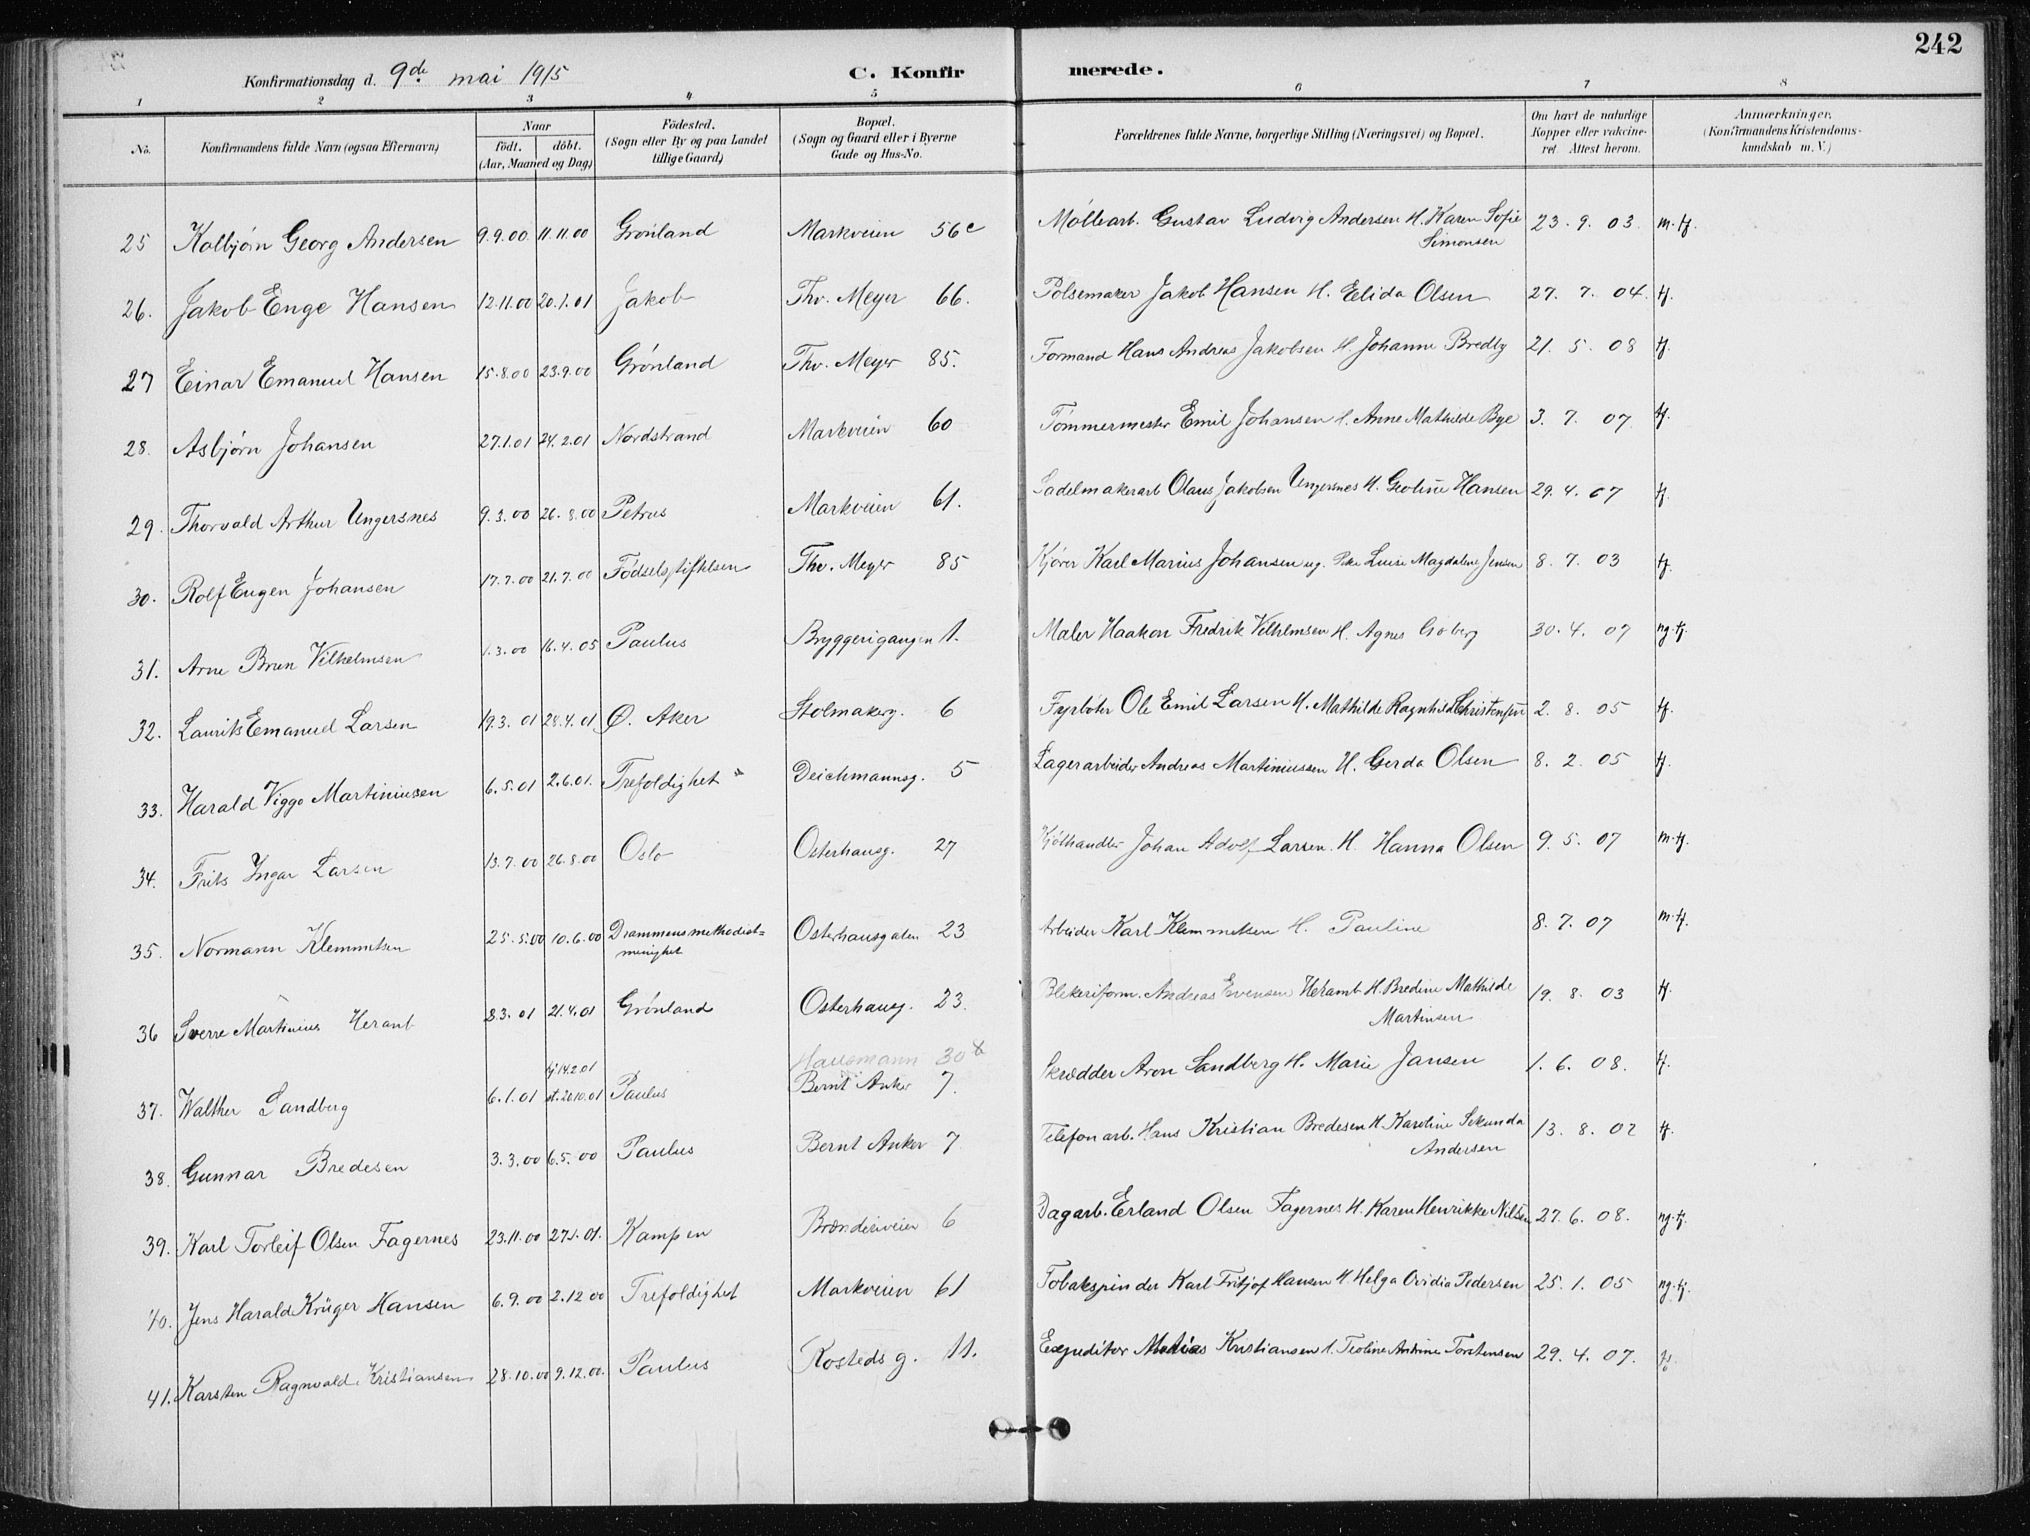 242
Konfirmationsdag d. 9de mai 1915 C. Konfirmerede.
1 2 3 4 5 6 7 8
No. Konfirmandens fulde Navn (ogsaa Efternavn) Naar födt. döbt. (Aar, Maaned og Dag) Födested. (Sogn eller By og paa Landet tillige Gaard) Bopæl. (Sogn og Gaard eller i Byerne Gade og Hus-No. Forældrenes fulde Navne, borgerlige Stilling (Næringsvei) og Bopæl. Om havt de naturlige Kopper eller vakcineret Attest herom. Anmærkninger. (Konfirmandens Kristendomskundskab m.V.)
25 Kolbjørn Georg Andersen 9.9.00 11.11.00 Grønland Markveien 56c Møllearb. Gustav Ludvig Andersen H. Karen Sofie Simonsen 23.9.03. m.tf.
26. Jakob Enge Hansen 12.11.00 20.1.01 Jakob Thv. Meyer 66. Pølsemaker Jakob Hansen H. Elida Olsen 27.7.04. tf.
27 Einar Emanuel Hansen 15.8.00 23.9.00 Grønland Thv. Meyer 85. Formand Hans Andreas Jakobsen H. Johanne Bredly 21.5.08 tf.
28. Asbjørn Johansen 27.1.01 24.2.01 Nordstrand Markveien 60 Tömmermester Emil Johansen H. Anne Mathilde Bye 3.7.07 tf.
29. Thorvald Arthur Ungersnes 9.3.00 26.8.00 Petrus Markveien 61. Sadelmakerarb Olaus Jakobsen Ungersnes H. Geoline Hansen 29.4.07 tf.
30. Rolf Eugen Johansen 17.7.00 21.7.00 Födselsstiftelsen Thv. Meyer 85 Kjører Karl Marius Johansen ug. Pike Luise Magdalene Jensen 8.7.03 tf.
31. Arne Brun Vilhelmsen 1.3.00 16.4.05 Paulus Bryggerigangen 1. Maler Haakon Fredrik Vilhelmsen H. Agnes 30.4.07 ng.tf.
32. Laurits Emanuel Larsen 19.3.01 28.4.01 Ø. Aker Stolmakerg. 6 Fyrbøter Ole Emil Larsen H. Mathilde Ragnhild Christensen 2.8.05 tf.
33. Harald Viggo Martiniusen 6.5.01 2.6.01. Trefoldighet Deichmannsg. 5 Lagerarbeider Andreas Martiniussen H. Gerda Olsen 8.2.05 tf.
34. Frits Ingar Larsen 13.7.00 26.8.00 Oslo Osterhausg. 27 Kjøthandler Johan Adolf Larsen H. Hanna Olsen 9.5.07 m.tf.
35. Normann Klemmetsen 25.5.00 10.6.00 Drammens methodistmenighet Osterhausgaten 23 Arbeider Karl Klemmetsen H. Pauline 8.7.07 m.tf.
36 Sverre Martinius Heramb 8.3.01 21.4.01 Grønland Osterhausg. 23. Blekeriform. Andreas Evensen Heramb H. Bredine Mathilde Martinsen 19.8.03 tf.
37. Walther Sandberg 6.1.01 hj 14.2.01 st. 20.10.01 Paulus Hausmann 30 Bernt Anker 7. Skrædder Aron Sandberg H. Marie Jansen 1.6.08. tf.
38. Gunnar Bredesen 3.3.00 6.5.00 Paulus Bernt Anker 7 Telefonarb. Hans Kristian Bredesen H. Karoline Sekunda Andersen 13.8.02 tf.
39. Karl Torleif Olsen Fagernes 23.11.00 27.1.01. Kampen Brænderiveien 6 Dagarb. Erland Olsen Fagernes H. Karen Henrikke Nilsen 27.6.08. ng.tf.
40. Jens Harald Krüger Hansen 6.9.00 2.12 00 Trefoldighet Markveien 61 Tobakspinder Karl Fritjof Hansen H. Helga Ovidia Pedersen 25.1.05 ng.tf.
41. Karsten Ragnvald Kristiansen 28.10.00 9.12.00. Paulus Kosteds g. 11. Expeditør Matias Kristiansen H. Teoline Andrine Torstensen 29.4.07. tf.